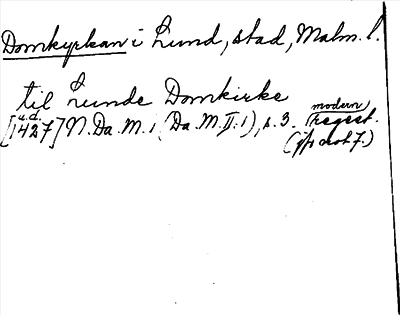 Domkyrkan i Lund, stad, Malm. l.
til Lunde Domkirke
u.d. modern
[1427] N. Da. M. 1 (Da. M. II. 1), s. 3. regest.
(jfr not 7.)